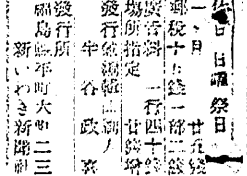 日 日曜祭日
一ヶ月 廿五錢
郵税十五錢一部二錢
廣告料 一行四十錢
場所指定 廿錢增
發行兼編輯印刷人
牛谷政喜
發行所
福島縣平町大町二三
新いわき新聞社